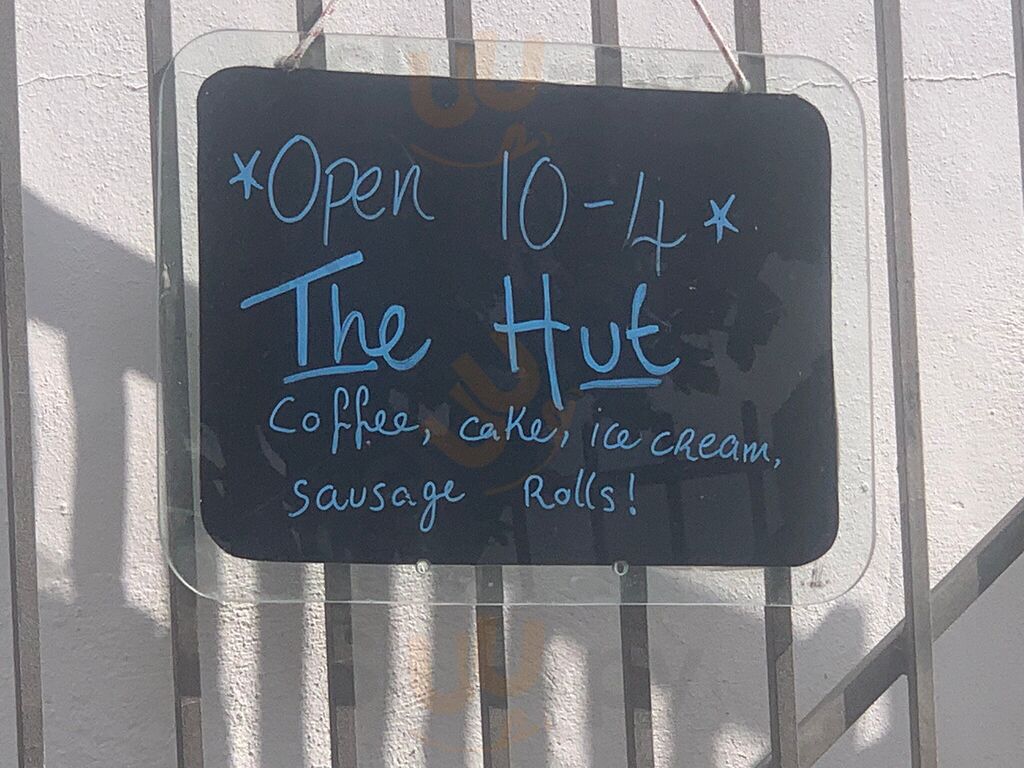 *Open 10-4*
The Hut
Coffee, cake, ice cream,
sausage Rolls!